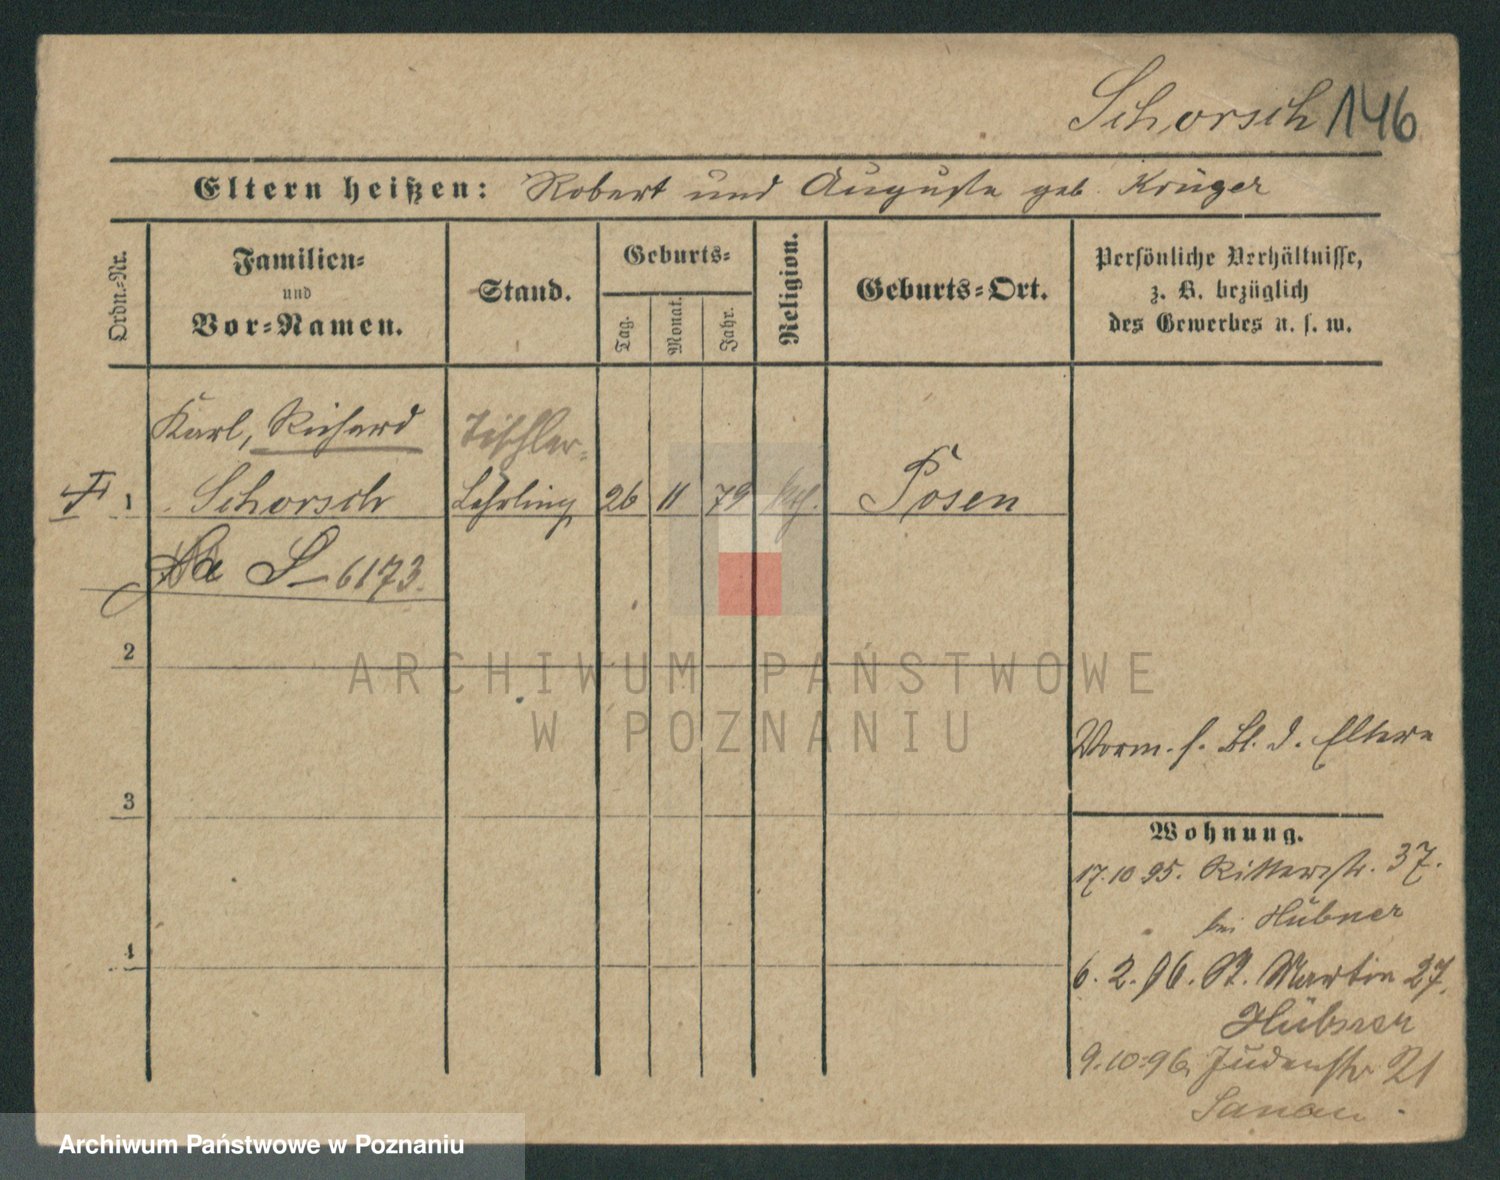 Schorsch 146
Eltern heißen: Robert und Auguste geb. Krüger
Ordn.-Nr.
Familien-
und
Vor-Namen.
Stand.
Geburts-
Tag.
Monat.
Jahr.
Religion.
Geburts-Ort.
Persönliche Verhältnisse,
z. B. bezüglich
des Gewerbes u. s. w.
Karl, Richard
Tischler-
1 Schorsch Lehrling 26 11 79 Posen
S-6173.
2
ARCHIWUM PAŃSTWOWE
W POZNANIU
Vorm. s. Bl. d. Eltern
3
Wohnung.
17.10 95. Ritterstr. 37.
bei Hübner
4
6. 2. 96. St. Martin 27.
Hübner
9.10.96, Judenstr 21
Archiwum Państwowe w Poznaniu